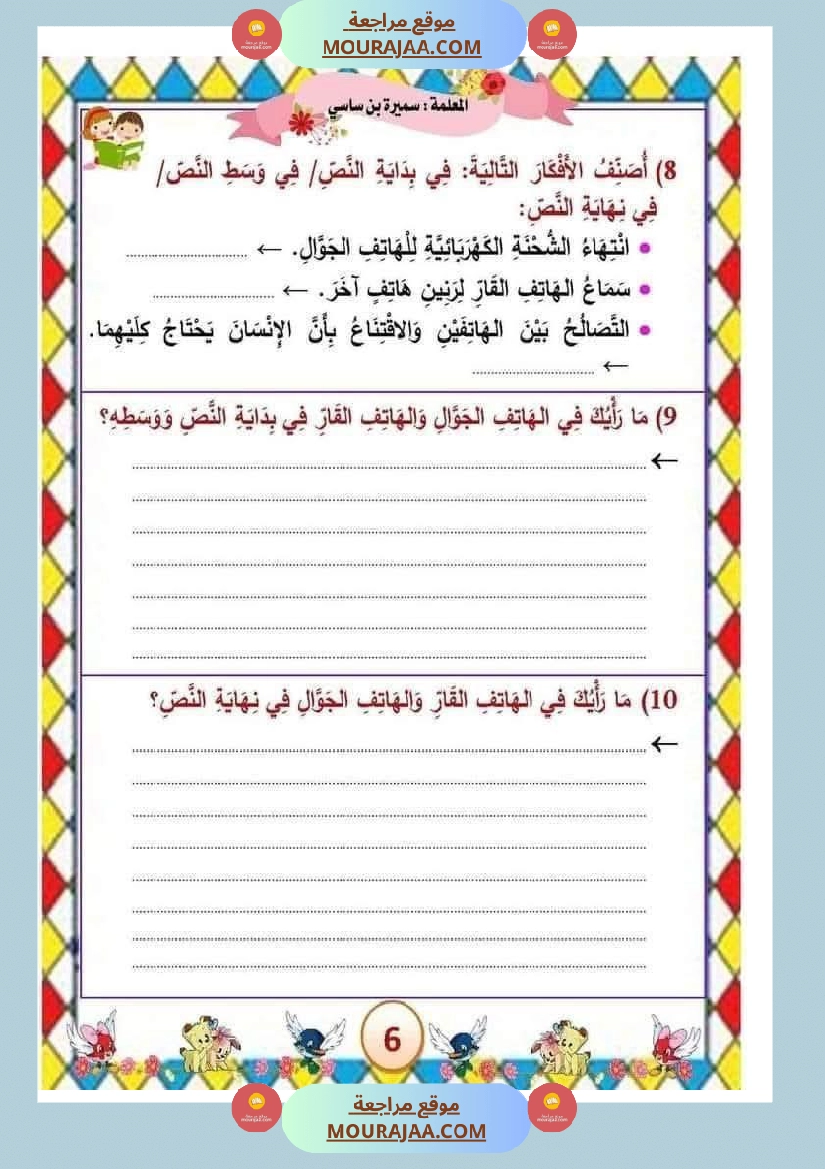 موقع مراجعة
MOURAJAA.COM
المعلمة : سميرة بن ساسي
8) أُصَنِّفُ الأَفْكَارَ التَّالِيَةَ: فِي بِدَايَةِ النَّصِّ/ فِي وَسَطِ النَّصِّ/
فِي نِهَايَةِ النَّصِّ:
• انْتِهَاءُ الشُّحْنَةِ الكَهْرَبَائِيَّةِ لِلْهَاتِفِ الجَوَّالِ. ← ..............................
• سَمَاعُ الهَاتِفِ القَارِّ لِرَنِينِ هَاتِفٍ آخَرَ. ← ..............................
• التَّصَالُحُ بَيْنَ الهَاتِفَيْنِ وَالاقْتِنَاعُ بِأَنَّ الإِنْسَانَ يَحْتَاجُ كِلَيْهِمَا.
← ..............................
9) مَا رَأْيُكَ فِي الهَاتِفِ الجَوَّالِ وَالهَاتِفِ القَارِّ فِي بِدَايَةِ النَّصِّ وَوَسَطِهِ؟
10) مَا رَأْيُكَ فِي الهَاتِفِ القَارِّ وَالهَاتِفِ الجَوَّالِ فِي نِهَايَةِ النَّصِّ؟
6
موقع مراجعة
MOURAJAA.COM